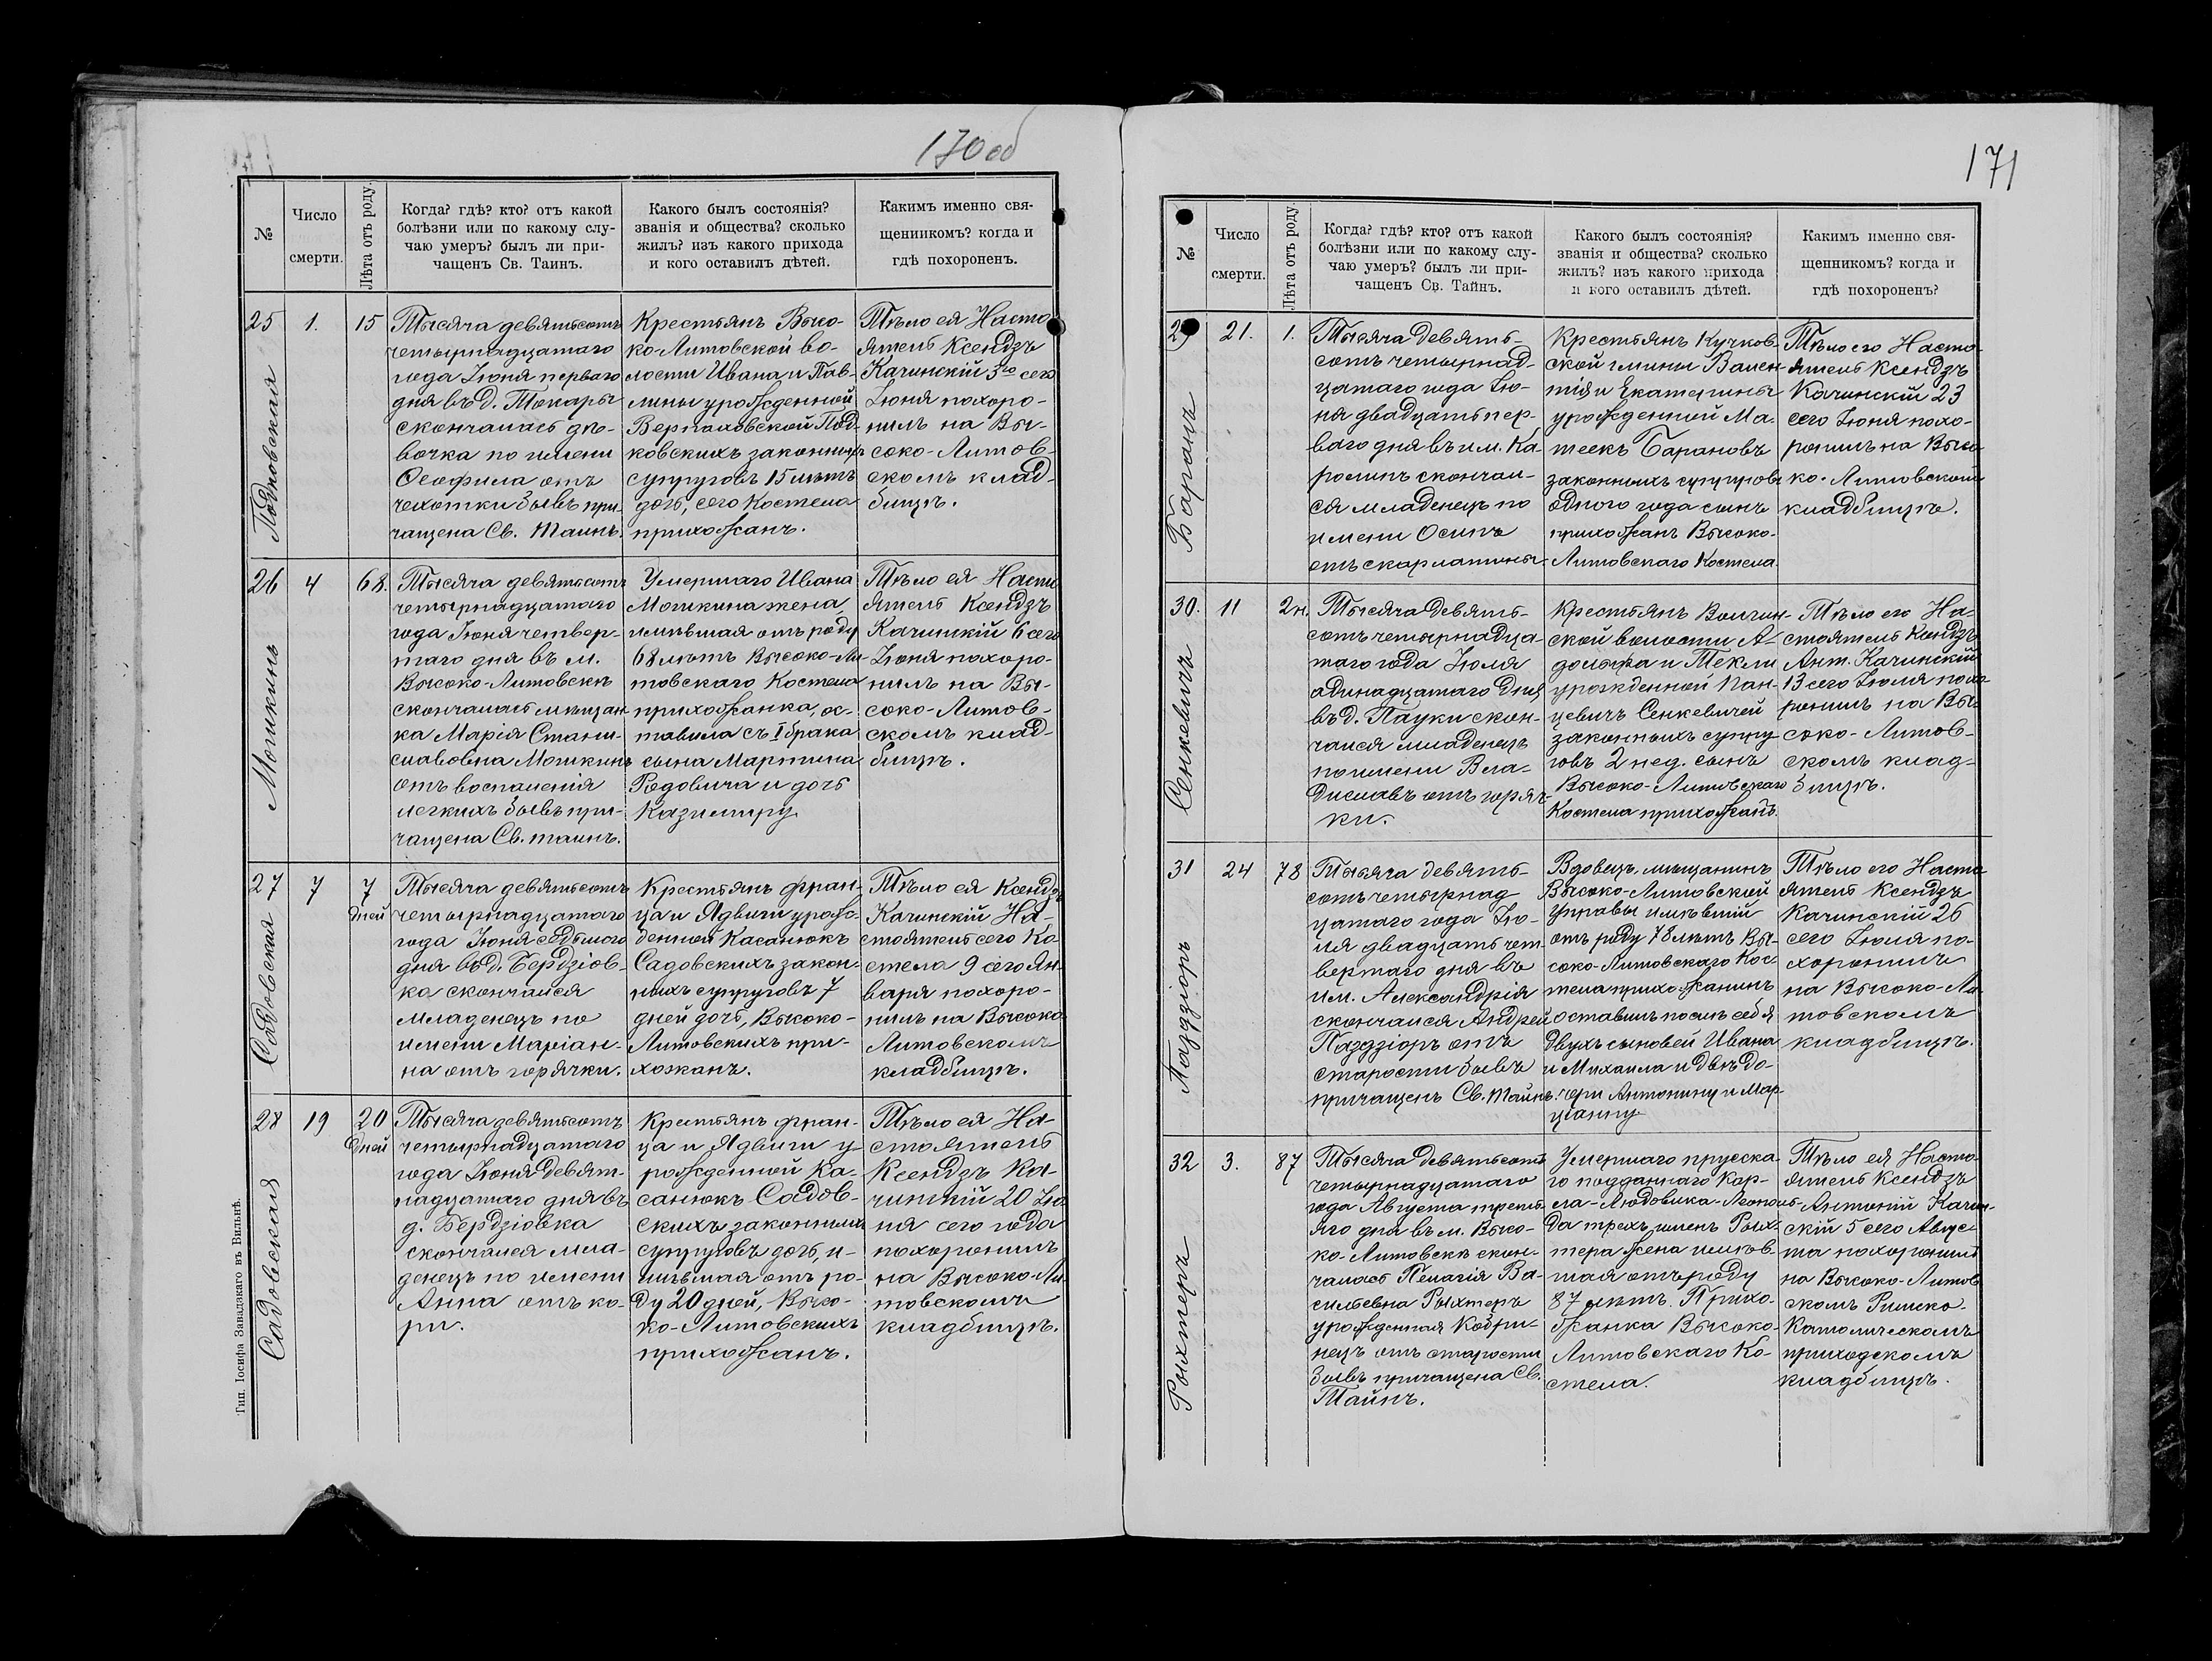 170 об
№
Число
смерти.
Лѣта отъ роду.
Когда? гдѣ? кто? отъ какой
болѣзни или по какому слу-
чаю умеръ? былъ ли при-
чащенъ Св. Таинъ.
Какого былъ состоянія?
званія и общества? сколько
жилъ? изъ какого прихода
и кого оставилъ дѣтей.
Какимъ именно свя-
щенникомъ? когда и
гдѣ похороненъ.
25
Подковская
1.
15
Тысяча девятьсотъ
четырнадцатаго
года Іюня перваго
дня въ д. Токары
скончалась дѣ-
вочка по имени
Ѳеофила отъ
чехотки бывъ при-
чащена Св. Таинъ.
Крестьянъ Высо-
ко-Литовской во-
лости Ивана и Пав-
лины урожденной
Верпаховской Под-
ковскихъ законныхъ
супруговъ 15 лѣтъ
дочь, сего Костела
прихожанъ.
Тѣло ея Насто-
ятель Ксендзъ
Качинскій 3го сего
Іюня похоро-
нилъ на Вы-
соко-Литов-
скомъ клад-
бищѣ.
26
Мошкинъ
4
68.
Тысяча девятьсотъ
четырнадцатаго
года Іюня четвер-
таго дня въ м.
Высоко-Литовскѣ
скончалась мѣщан-
ка Марія Стани-
славовна Мошкинъ
отъ воспаленія
легкихъ бывъ при-
чащена Св. таинъ.
Умершаго Ивана
Мошкина жена,
имѣвшая отъ роду
68 лѣтъ Высоко-Ли-
товскаго Костела
прихожанка, ос-
тавила съ I брака
сына Мартина
Родовича и дочь
Казимиру
Тѣло ея Насто-
ятель Ксендзъ
Качинскій 6 сего
Іюня похоро-
нилъ на Вы-
соко-Литов-
скомъ клад-
бищѣ.
27
Садовская
7
7
дней
Тысяча девятьсотъ
четырнадцатаго
года Іюня седьмого
дня въ д. Бердзіов-
ка скончался
младенецъ по
имени Маріан-
на отъ горячки.
Крестьянъ Фран-
ца и Ядвиги урож-
денной Касанюкъ
Садовскихъ закон-
ныхъ супруговъ 7
дней дочь, Высоко-
Литовскихъ при-
хожанъ.
Тѣло ея Ксендзъ
Качинскій На-
стоятель сего Ко-
стела 9 сего Ян-
варя похоро-
нилъ на Высоко-
Литовскомъ
кладбищѣ.
28
Садовская
19
20
дней
Тысяча девятьсотъ
четырнадцатаго
года Іюня девят-
надцатаго дня въ
д. Бердзіовка
скончался мла-
денецъ по имени
Анна отъ ко-
ри.
Крестьянъ Фран-
ца и Ядвиги у-
рожденной Ка-
санюкъ Садов-
скихъ законныхъ
супруговъ дочь, и-
мѣвшая отъ ро-
ду 20 дней, Высо-
ко-Литовскихъ
прихожанъ.
Тѣло ея На-
стоятель
Ксендзъ Ка-
чинскій 20 Ію-
ня сего года
похоронилъ
на Высоко-Ли-
товскомъ
кладбищѣ.
Тип. Іосифа Завадзкаго въ Вильнѣ.
171
№
Число
смерти.
Лѣта отъ роду.
Когда? гдѣ? кто? отъ какой
болѣзни или по какому слу-
чаю умеръ? былъ ли при-
чащенъ Св. Тайнъ.
Какого былъ состоянія?
званія и общества? сколько
жилъ? изъ какого прихода
и кого оставилъ дѣтей.
Какимъ именно свя-
щенникомъ? когда и
гдѣ похороненъ?
2
Баранъ
21.
1.
Тысяча девять-
сотъ четырнад-
цатаго года Ію-
ня двадцать пер-
ваго дня въ им. Ка-
ролинъ скончал-
ся младенецъ по
имени Осипъ
отъ скарлатины
Крестьянъ Кучков-
ской гмины Вален-
тія и Екатерины
урожденной Ма-
теекъ Барановъ
законныхъ супруговъ
одного года сынъ
прихожанъ Высоко-
Литовскаго Костела
Тѣло его Насто-
ятель Ксендзъ
Качинскій 23
сего Іюня похо-
ронилъ на Высо-
ко-Литовской
кладбищѣ.
30.
Сенкевичъ
11
2 н.
Тысяча девять-
сотъ четырнадца-
таго года Іюля
адинадцатаго дня
въ д. Пауки скон-
чался младенецъ
по имени Вла-
диславъ отъ горяч-
ки.
Крестьянъ Волчин-
ской волости А-
дольфа и Текли
урожденной Пан-
цевичъ Сенкевичей
законныхъ супру-
говъ 2 нед. сынъ
Высоко-Литовскаго
Костела прихожанъ.
Тѣло его На-
стоятель Ксендзъ
Ант. Качинскій
13 сего Іюля похо-
ронилъ на Вы-
соко-Литов-
скомъ клад-
бищѣ.
31
Паздзіоръ
24
78
Тысяча девять-
сотъ четырнад-
цатаго года Ію-
ля двадцать чет-
вертаго дня въ
им. Александрія
скончался Андрей
Паздзіоръ отъ
старости бывъ
причащенъ Св. Тайнъ.
Вдовецъ, мѣщанинъ
Высоко-Литовской
Управы имѣвшій
отъ роду 78 лѣтъ Вы-
соко-Литовскаго Кос-
тела прихожанинъ
оставилъ послѣ себя
двухъ сыновей Ивана
и Михаила и двѣ до-
чери Антонину и Мар-
ціанну
Тѣло его Насто-
ятель Ксендзъ
Качинскій 26
сего Іюля по-
хоронилъ
на Высоко-Ли-
товскомъ
кладбищѣ.
32
Рыхтеръ
3.
87
Тысяча девятьсотъ
четырнадцатаго
года Августа треть-
яго дня въ м. Высо-
ко-Литовскѣ скон-
чалась Пелагія Ва-
сильевна Рыхтеръ
урожденная Кобри-
нецъ отъ старости
бывъ причащена Св.
Тайнъ.
Умершаго прусска-
го подданнаго Кар-
ла-Людовика-Леополь-
да трехъ именъ Рых-
тера жена имѣв-
шая отъ роду
87 лѣтъ. Прихо-
жанка Высоко-
Литовскаго Ко-
стела.
Тѣло ея Насто-
ятель Ксендзъ
Антоній Качин-
скій 5 сего Авгус-
та похоронилъ
на Высоко-Литов-
скомъ Римско-
Католическомъ
приходскомъ
кладбищѣ.